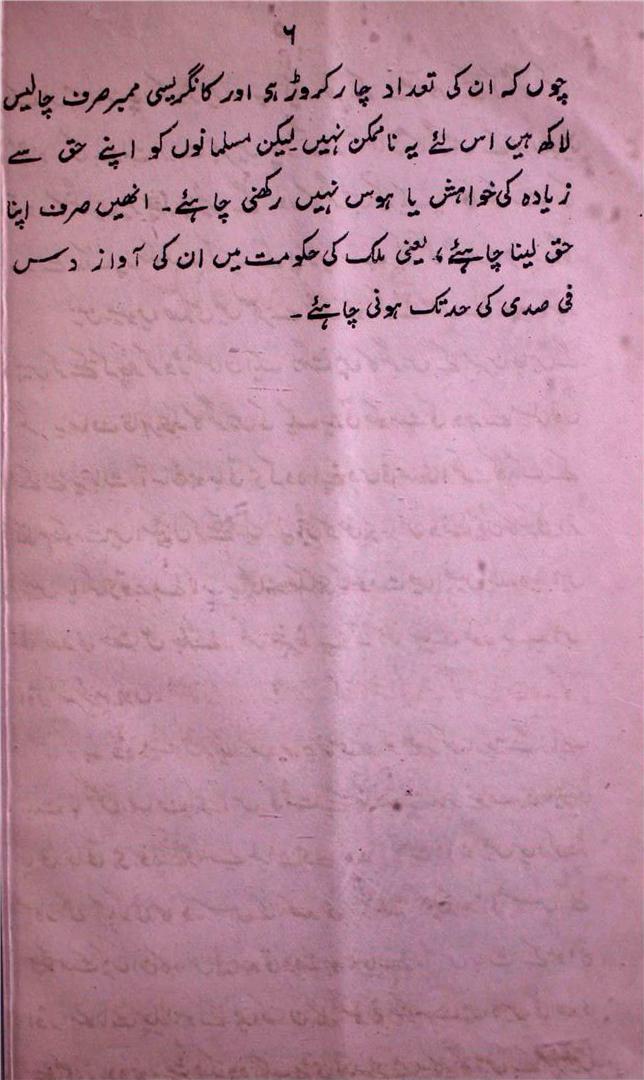 ۶
چوں کہ ان کی تعداد چار کروڑ ہو اور کانگریسی ممبر صرف چالیس
لاکھ ہیں اس لئے یہ ناممکن نہیں لیکن مسلمانوں کو اپنے حق سے
زیادہ کی خواہش یا ہوس نہیں رکھنی چاہئے۔ انھیں صرف اپنا
حق لینا چاہئے، یعنی ملک کی حکومت میں ان کی آواز دس
فی صدی کی حد تک ہونی چاہئے۔